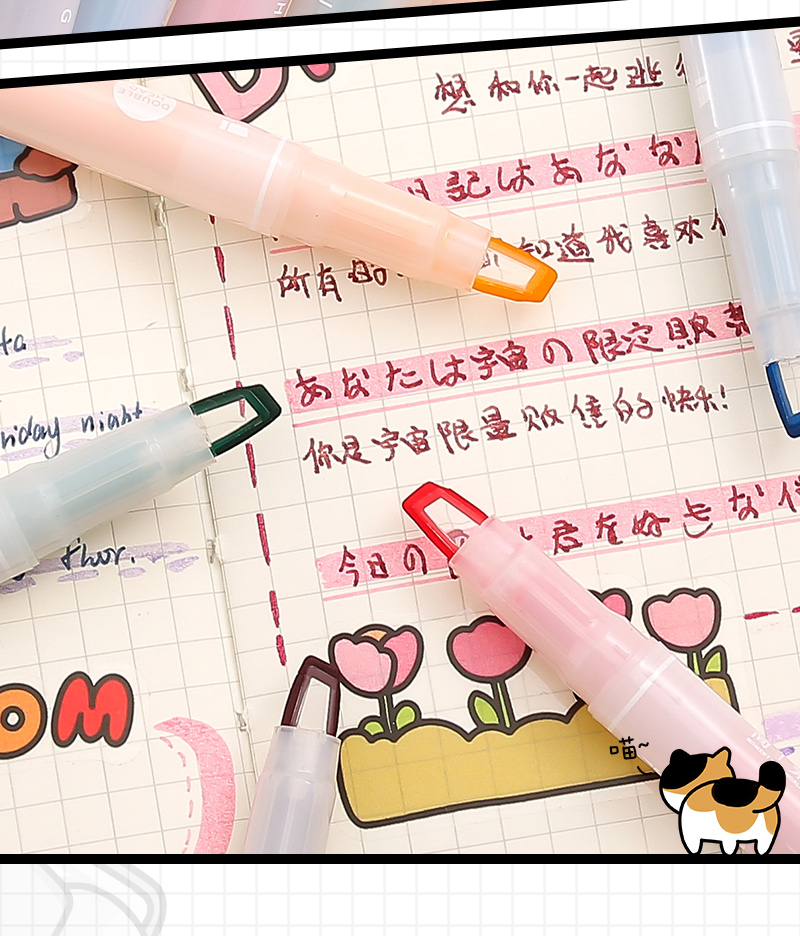 想和你一起逃
日記はあなな
知道我喜欢
所有的
あなたは宇宙の限定販
你是宇宙限量贩售的快乐!
今日の
君を好きな
ta
riday night
thur.
OM
DOUBLE
HEAD
喵~